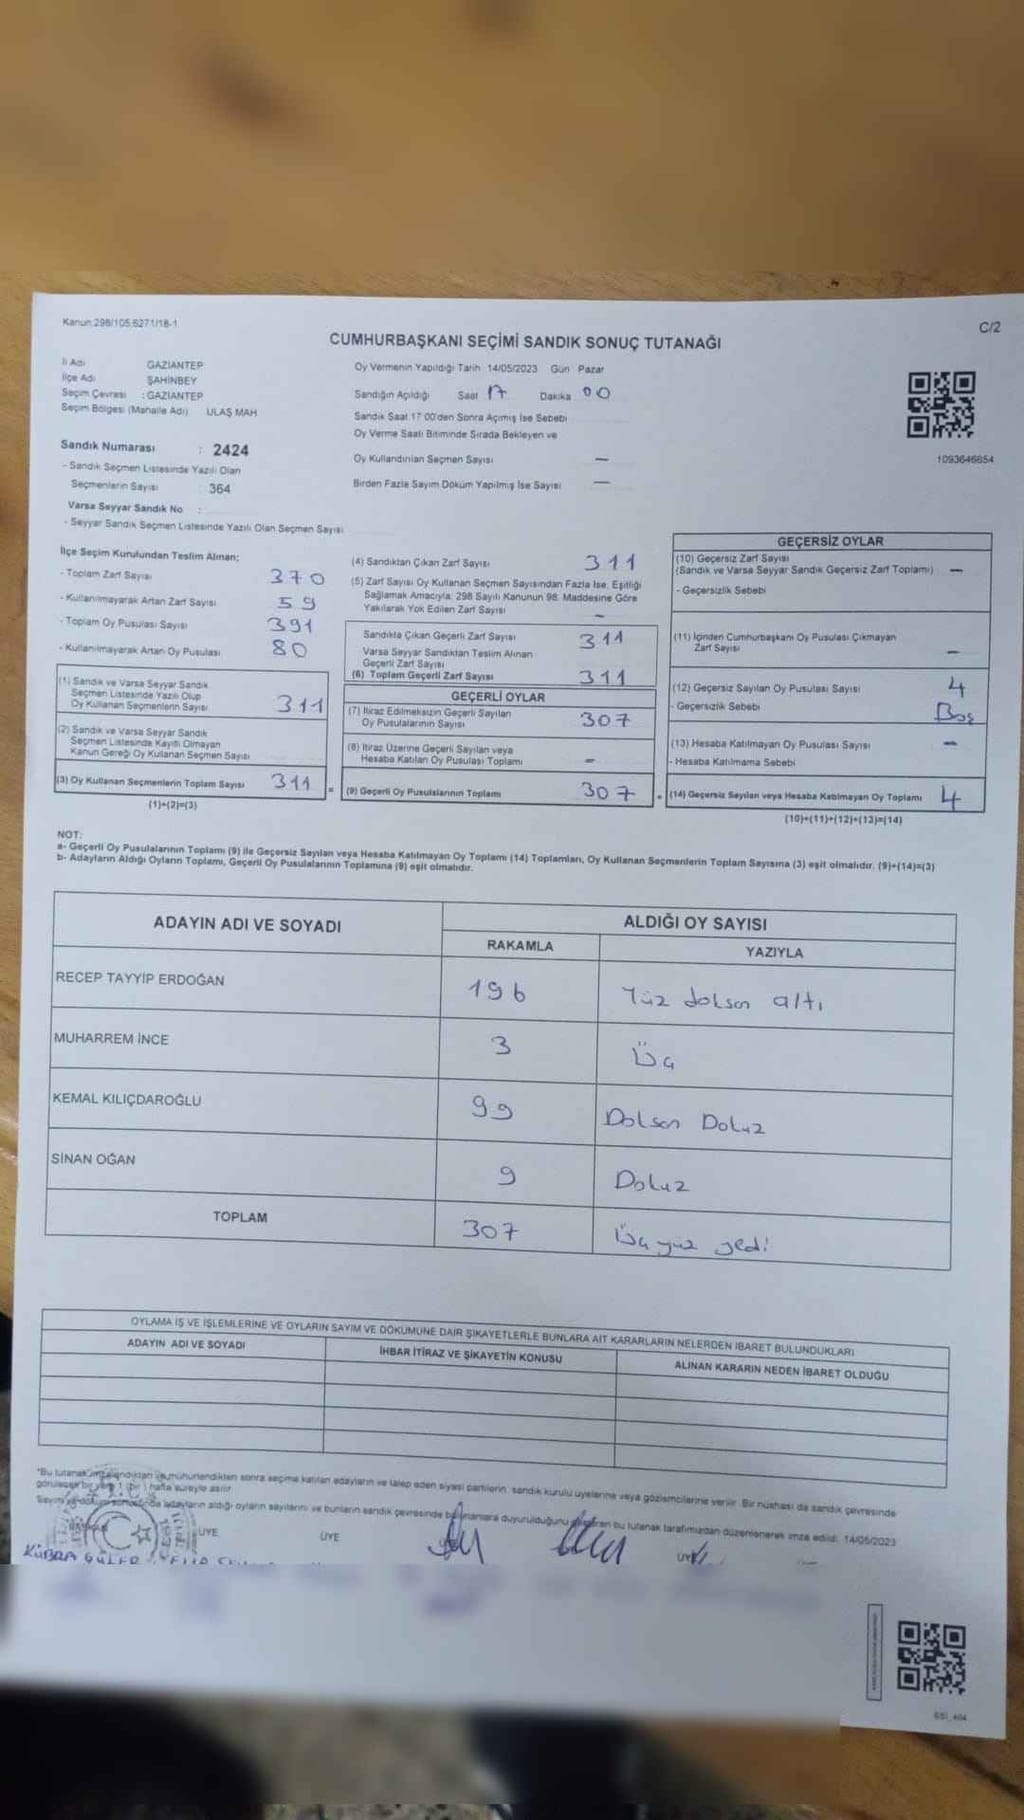 Kanun:298/105 6271/18-1
C/2
CUMHURBAŞKANI SEÇİMİ SANDIK SONUÇ TUTANAĞI
İl Adı GAZİANTEP
İlçe Adı ŞAHİNBEY
Seçim Çevresi : GAZİANTEP
Seçim Bölgesi (Mahalle Adı) ULAŞ MAH
Sandık Numarası : 2424
- Sandık Seçmen Listesinde Yazılı Olan
Seçmenlerin Sayısı 364
Varsa Seyyar Sandık No :
- Seyyar Sandık Seçmen Listesinde Yazılı Olan Seçmen Sayısı
Oy Vermenin Yapıldığı Tarih 14/05/2023 Gün Pazar
Sandığın Açıldığı Saat 17 Dakika 00
Sandık Saat 17 00'den Sonra Açımış İse Sebebi
Oy Verme Saati Bitiminde Sırada Bekleyen ve
Oy Kullandırılan Seçmen Sayısı —
Birden Fazla Sayım Döküm Yapılmış İse Sayısı —
1093646654
İlçe Seçim Kurulundan Teslim Alınan;
- Toplam Zarf Sayısı 370
- Kullanılmayarak Artan Zarf Sayısı 59
- Toplam Oy Pusulası Sayısı 391
- Kullanılmayarak Artan Oy Pusulası 80
(1) Sandık ve Varsa Seyyar Sandık
Seçmen Listesinde Yazılı Olup
Oy Kullanan Seçmenlerin Sayısı 311
(2) Sandık ve Varsa Seyyar Sandık
Seçmen Listesinde Kayıtlı Olmayan
Kanun Gereği Oy Kulanan Seçmen Sayısı
(3) Oy Kullanan Seçmenlerin Toplam Sayısı 311 =
(1)+(2)=(3)
(4) Sandıktan Çıkan Zarf Sayısı 311
(5) Zarf Sayısı Oy Kullanan Seçmen Sayısından Fazla İse, Eşitliği
Sağlamak Amacıyla; 298 Sayılı Kanunun 98. Maddesine Göre
Yakılarak Yok Edilen Zarf Sayısı —
Sandıkta Çıkan Geçerli Zarf Sayısı 311
Varsa Seyyar Sandıktan Teslim Alınan
Geçerli Zarf Sayısı
(6) Toplam Geçerli Zarf Sayısı 311
GEÇERLİ OYLAR
(7) İtiraz Edilmeksizin Geçerli Sayılan
Oy Pusulalarının Sayısı 307
(8) İtiraz Üzerine Geçerli Sayılan veya
Hesaba Katılan Oy Pusulası Toplamı —
(9) Geçerli Oy Pusulalarının Toplamı 307 +
GEÇERSİZ OYLAR
(10) Geçersiz Zarf Sayısı
(Sandık ve Varsa Seyyar Sandık Geçersiz Zarf Toplamı) —
- Geçersizlik Sebebi
(11) İçinden Cumhurbaşkanı Oy Pusulası Çıkmayan
Zarf Sayısı —
(12) Geçersiz Sayılan Oy Pusulası Sayısı 4
- Geçersizlik Sebebi Boş
(13) Hesaba Katılmayan Oy Pusulası Sayısı —
- Hesaba Katılmama Sebebi
(14) Geçersiz Sayılan veya Hesaba Katılmayan Oy Toplamı 4
(10)+(11)+(12)+(13)=(14)
NOT:
a- Geçerli Oy Pusulalarının Toplamı (9) ile Geçersiz Sayılan veya Hesaba Katılmayan Oy Toplamı (14) Toplamları, Oy Kullanan Seçmenlerin Toplam Sayısına (3) eşit olmalıdır. (9)+(14)=(3)
b- Adayların Aldığı Oyların Toplamı, Geçerli Oy Pusulalarının Toplamına (9) eşit olmalıdır.
ADAYIN ADI VE SOYADI ALDIĞI OY SAYISI
RAKAMLA YAZIYLA
RECEP TAYYİP ERDOĞAN 196 Yüz doksan altı
MUHARREM İNCE 3 Üç
KEMAL KILIÇDAROĞLU 99 Doksan Dokuz
SİNAN OĞAN 9 Dokuz
TOPLAM 307 Üçyüz yedi
OYLAMA İŞ VE İŞLEMLERİNE VE OYLARIN SAYIM VE DÖKÜMÜNE DAİR ŞİKAYETLERLE BUNLARA AİT KARARLARIN NELERDEN İBARET BULUNDUKLARI
ADAYIN ADI VE SOYADI İHBAR İTİRAZ VE ŞİKAYETİN KONUSU ALINAN KARARIN NEDEN İBARET OLDUĞU
*Bu tutanak imzalandıktan ve mühürlendikten sonra seçime katılan adayların ve talep eden siyasi partilerin, sandık kurulu üyelerine veya gözlemcilerine verilir. Bir nüshası da sandık çevresinde
görülecek bir yere 1 (bir) hafta süreyle asılır.
Sayım ve döküm sonucunda adayların aldığı oyların sayılarını ve bunların sandık çevresinde bulunanlara duyurulduğunu gösteren bu tutanak tarafımızdan düzenlenerek imza edildi. 14/05/2023
ÜYE ÜYE ÜYE
KÜBRA GÜLER